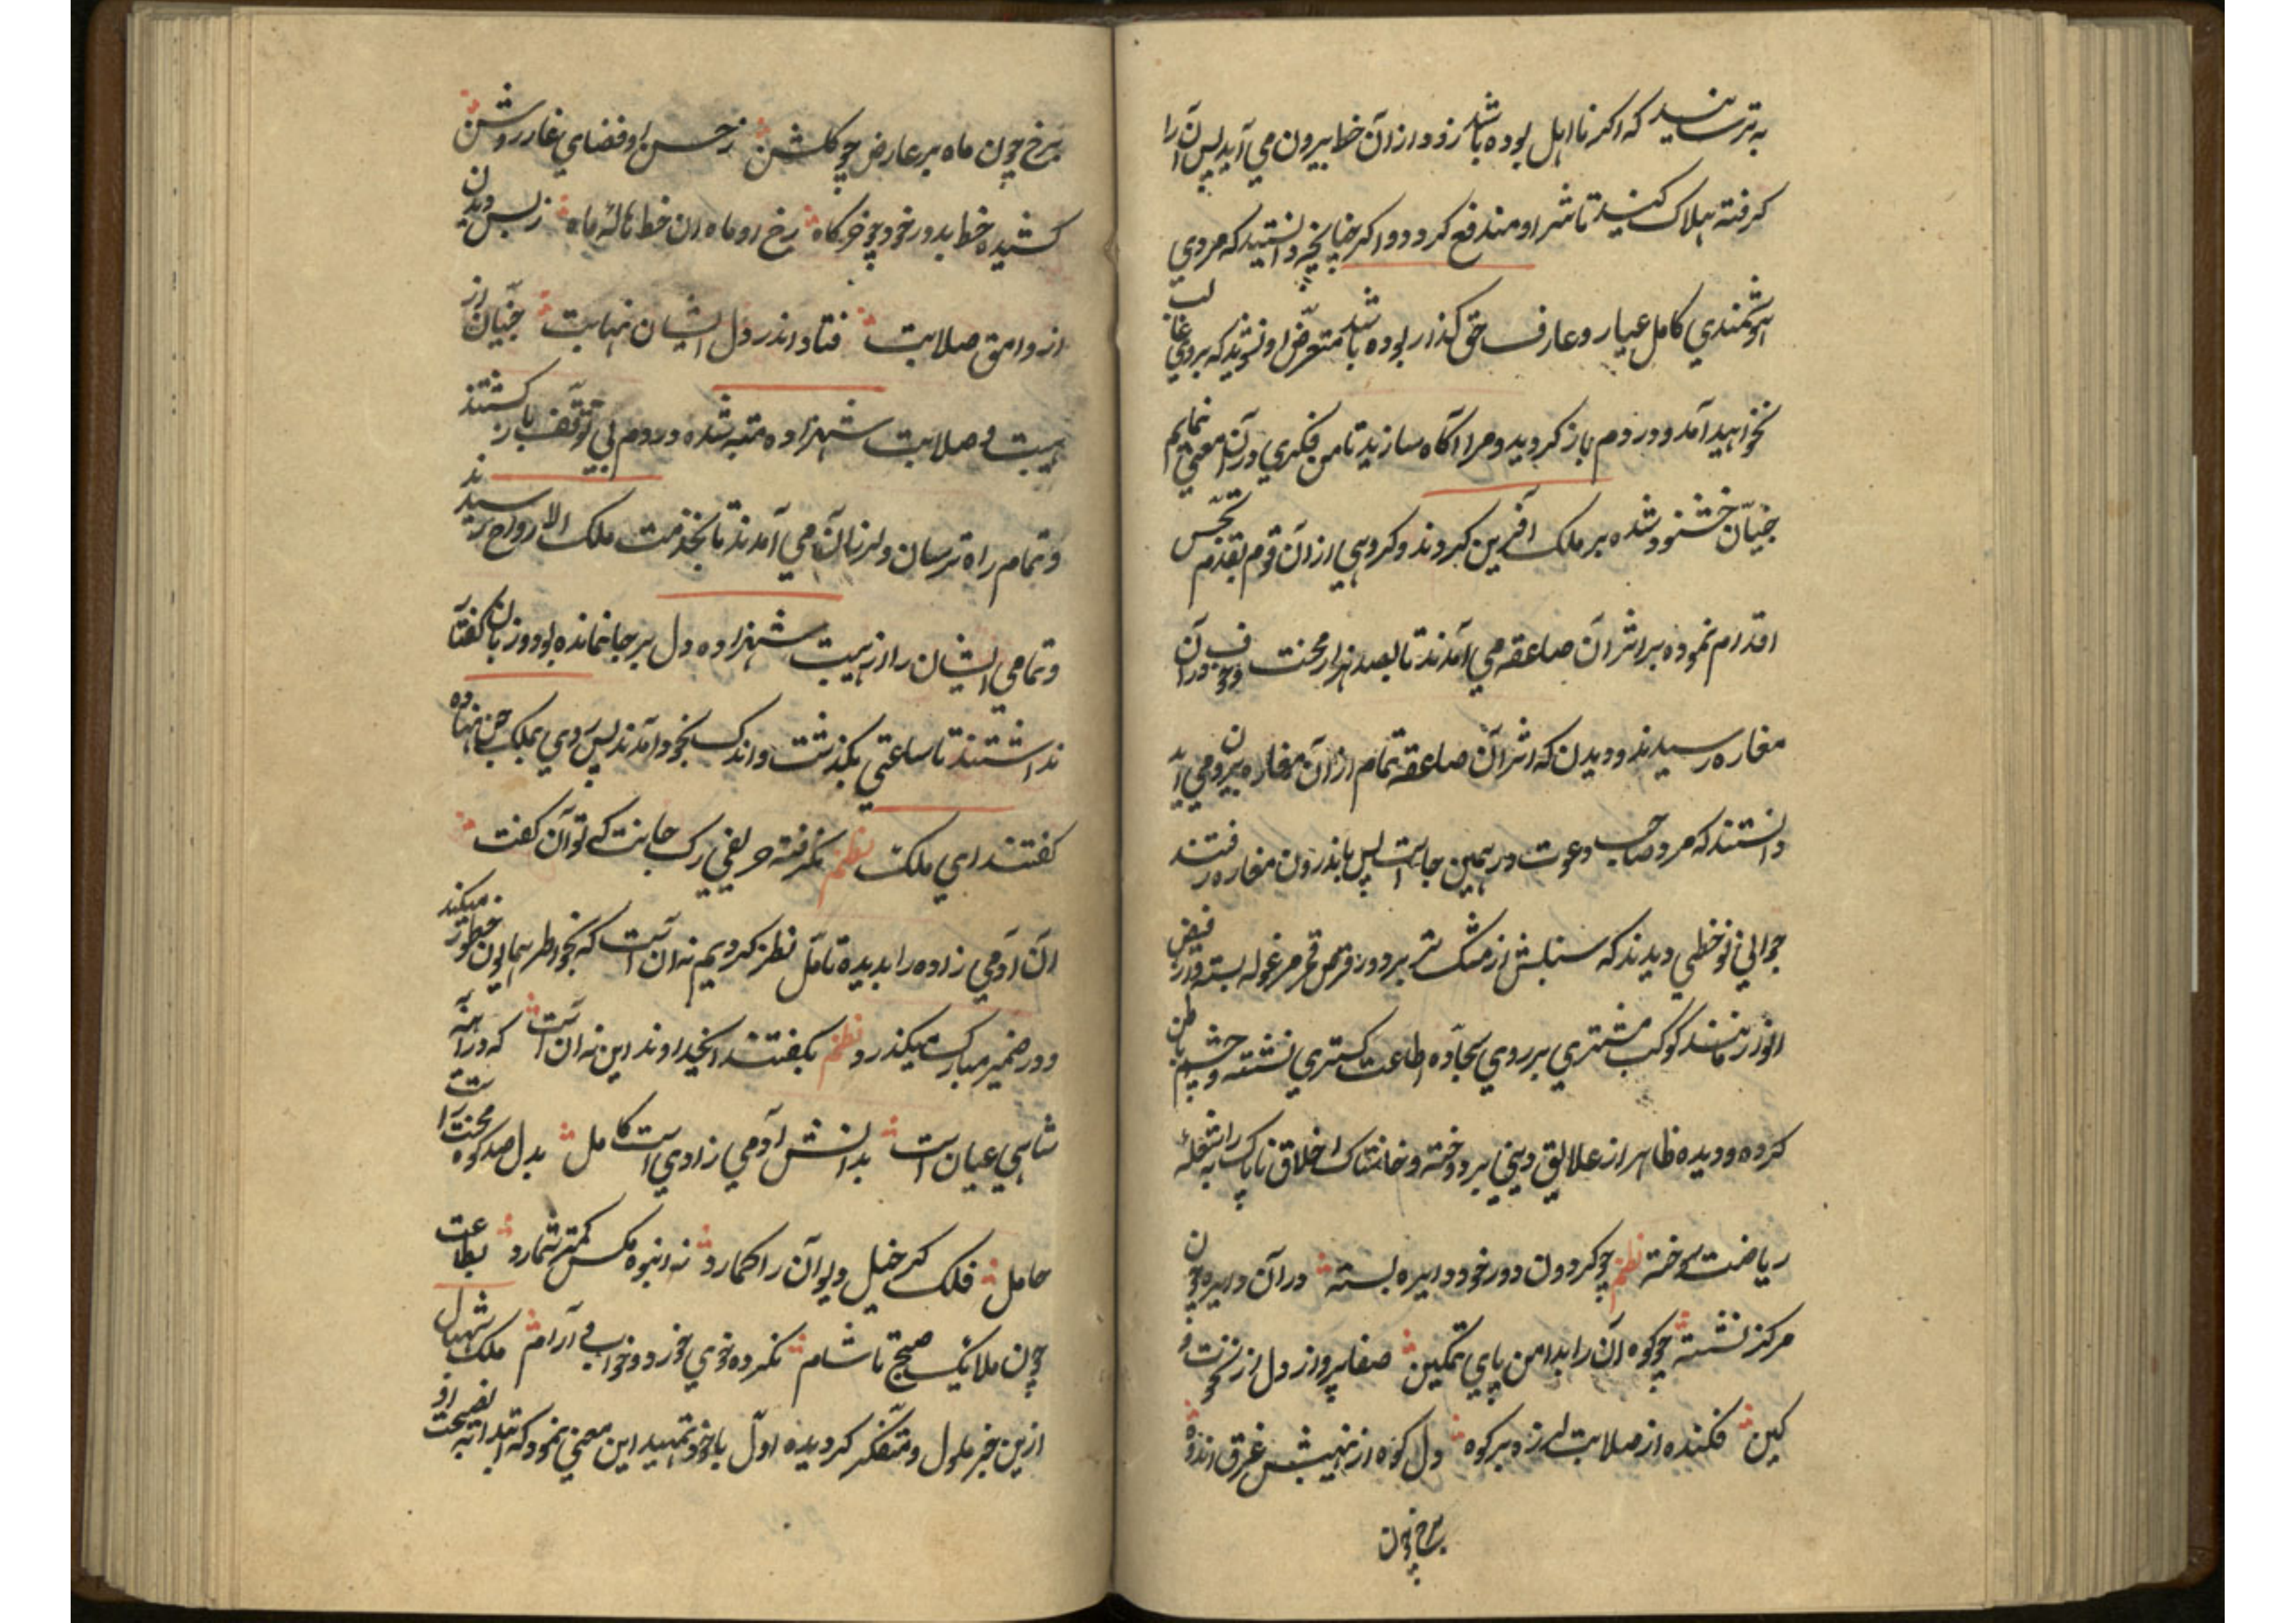 به ترسانید که اکر نااهل بوده باشد زود از آن خط بیرون می آید پس آن را
کرفته هلاک کنید تا شر او مندفع کردد و اکر چنانچه دانستید که مردی
هوشمندی کامل عیار و عارف حق کذار بوده باشد متعرّض او نشوید که بروی غالب
نخواهید آمد و در دم باز کردید و مرا آکاه سازید تا من فکری در آن معنی نمایم
جنیّان خشنود شده بر ملک آفرین کردند و کروهی از آن قوم بقدم تجسّس
اقدام نموده بر اثر آن صاعقه می آمدند تا بصد هزار محنت و خوف در آن
مغاره رسیدند و دیدن که اثر آن صاعقه تمام از آن مغاره بیرون می آید
دانستند که مرد صاحب دعوت در همین جاست پس باندرون مغاره در رفتند
جوانی نوخطی دیدند که سنبلش از مشک تر بر دور قرص قمر مرغوله بسته و از فیض
انور مانند کوکب مشتری بر روی سجّاده اطاعت کستری نشسته و چشم باطن
کرده و دیده ظاهر از علایق دینی بردوخته و خاشتاک اخلاق ناپاک را بشعلهٔ
ریاضت سوخته نظم چو کردون دور خود دایره بسته در آن دایره چون
مرکز نشسته چو کوه آن را بدامن پای تمکین صفاپرور ز دل از نخوت و
کین فکنده از صلابت لرزه بر کوه دل کوه از نهیبش غرق اندوه
برخ چون
برخ چون ماه بر عارض چو کلشن ز حسن او فضای غار روشن
کشیده خط بدور خود چو خرکاه رخ او ماه ان خط هالهٔ ماه ز بس دیدن
از و امق صلابت فتاد اندر دل ایشان نهابت جنّیان از
هیبت و صلابت شهزاده متعبه شده در دم بی توقّف باز کشتند
و تمام راه ترسان و لرزنان می آمدند تا بخدمت ملک الارواح رسیدند
و تمامی ایشان را از هیبت شهزاده دل بر جا نمانده بود و زبان کفتار
نداشتند تا ساعتی بکذشت و اندک بخود آمدند پس روی بملک جن نهاده
کفتند ای ملک نظم نکرفته حریفی رک جانت که تو آن کفت
آن آدمی زاده را بدیده تامّل نظر کردیم نه آن است که بخواطر همایون خطور میکند
و در ضمیر مبارکت میکذرد نظم بکفتند ایخداوند این نه آن است که در آئینه
شاهی عیان است بدانش آدمی زادی است کامل بدل صد کوه محنت راست
حامل فلک کر خیل دیوان را کمارد نه انبوه مکس کمتر شمارد بطاعت
چون ملایک صبح تا شام نکرده خوی خورد و خواب و آرام ملک شهبال
ازین خبر ملول و متفّکر کردیده اوّل باخود تمهید این معنی نمود که ابتدا به نصیحت او